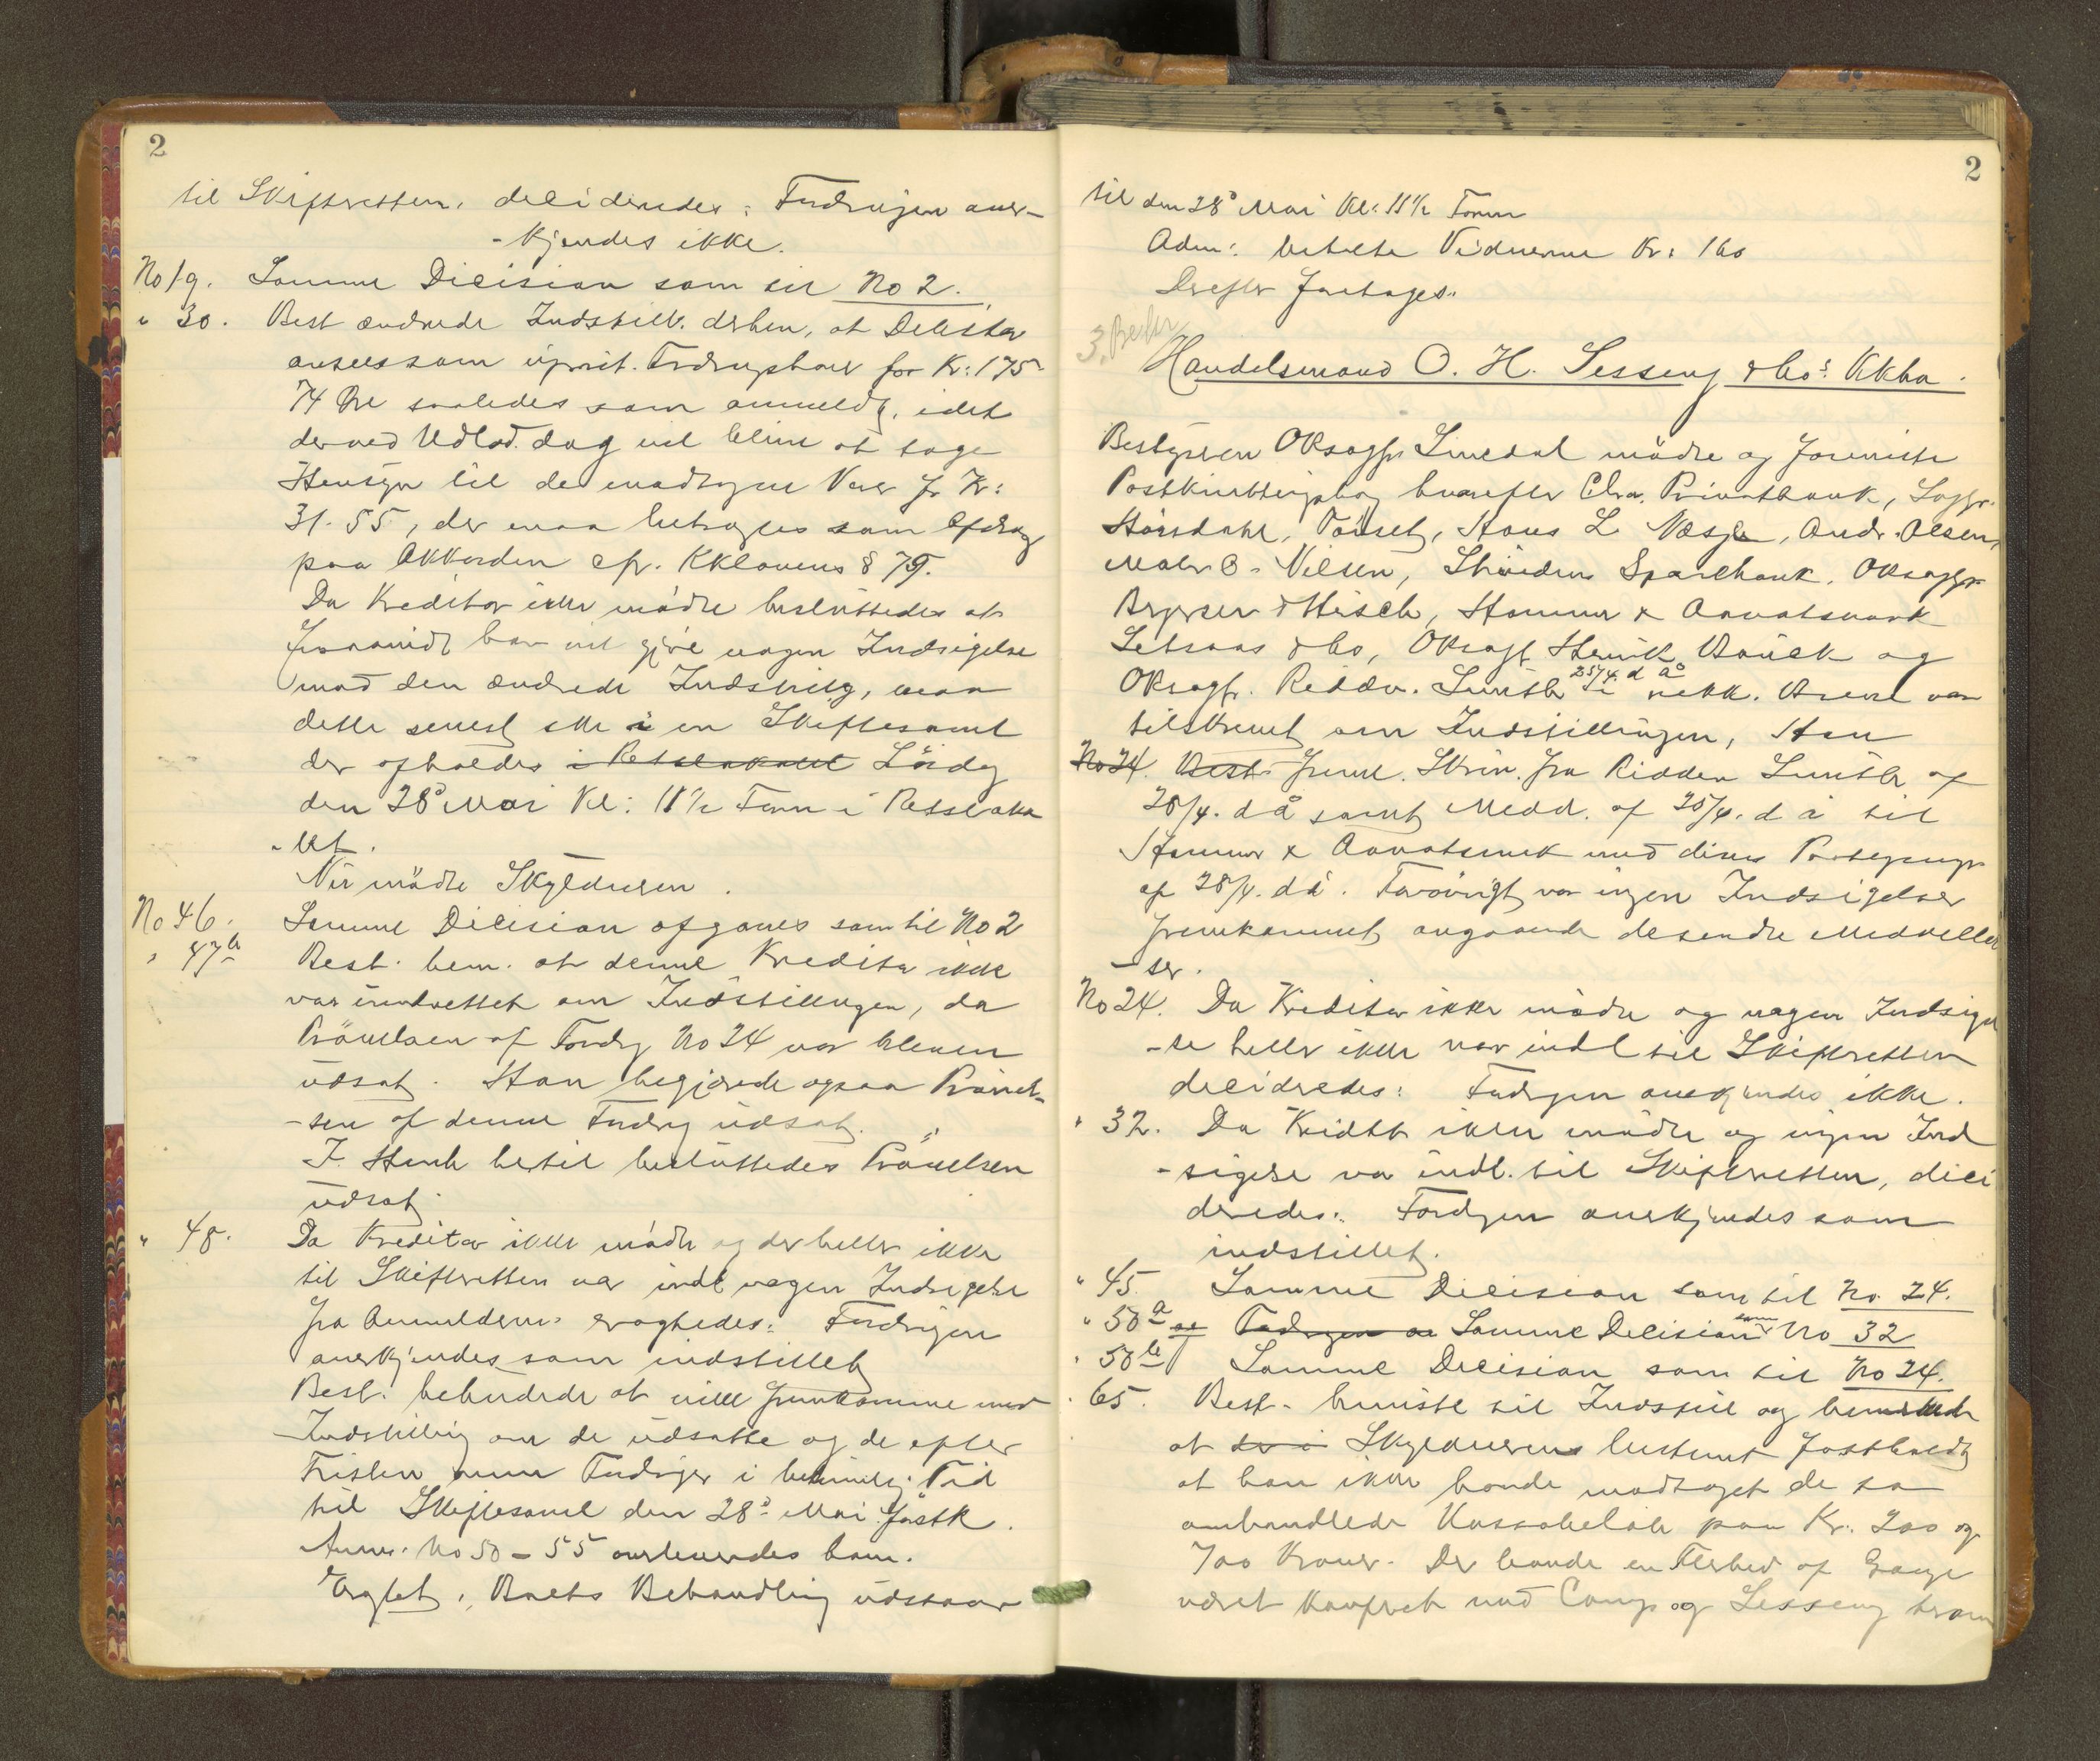 2
til Skifteretten, decideredes: Fordringen aner-
-kjendes ikke.
No 19. Samme Dicision som til No 2.
" 30. Best ændrede Indstill. derhen, at Debitor
ansees som uprit. Fordringshaver for Kr: 175
74 Øre saaledes som anmeldt, idet
der ved Udlod. dog vil blive at tage
Hensyn til de modtagne Varer for Kr:
31.55, der maa betragtes som Afdrag
paa Akkorden cfr. Kklovens § 79.
Da Kreditor ikke mødte besluttedes at
forsaavidt han vil gjøre nogen Indsigelse
mod den ændrede Indstillg, maa
dette senest ske i en Skiftesaml
der afholdes i Retslokalet Lördag
den 28de Mai Kl: 11½ Form i Retsloka
-let.
Nu mödte Skyldneren.
No 46. Samme Dicision afgaves som til No 2
" 47b Best. bem. at denne Kreditor ikke
var underrettet om Indstillingen, da
Prövelsen af Fordrg No 24 var bleven
udsat. Han begjærede ogsaa Prövel-
-sen af denne Fordrg udsat.
I Henh hertil besluttedes Prövelsen
udsat.
" 48. Da Kreditor ikke mödte og der heller ikke
til Skifteretten var indl nogen Indsigelse
fra Anmelderen eragtedes: Fordringen
anerkjendes som indstillet
Best. bebudede at ville fremkomme med
Indstilling om de udsatte og de efter
Fristen anm Fordringer i betimelig Tid
til Skiftesaml den 28de Mai förstk.
Anm. No 50 - 55 overleveredes ham.
Eragtet, Boets Behandling udstaar
2
til den 28de Mai Kl: 11½ Form
Adm: betalte Vidnerne Kr: 160
Derefter foretoges:
Handelsmand O. H. Sesseng & Co's Kkbo.
Bestyreren ORsagfr Smedal mödte og foreviste
Postkvitteringsbog hvorefter Chra. Privatbank, Sagfr.
Horsdahl, Hans L Næsje, Andr. Olsen,
Maler O. Nilsen, Sparebank, ORsagfr
& Hisch, Hammer & Aavatsmark
Setraas & Co, ORsagf Henrik og
ORsagfr. Reddv. Smith i rekk. Breve var 25/4. d å
tilskrevet om Indstillingen, Han
No 24. Best. freml. Skriv. fra Reddv Smith af
28/4. d å samt Medd. af 25/4. d å til
Hammer & Aavatsmark med dines Paategning
af 28/4. d å. Forövrigt var ingen Indsigelser
fremkommet angaaende desendte Meddelel
-ser.
No 24. Da Kreditor ikke mödte og nogen Indsigel
-se heller ikke var indl til Skifteretten
decideredes: Fordrgen anerkjendes ikke.
" 32. Da Kreditor ikke mödte og ingen Ind
-sigelse var indl. til Skifteretten, dici
deredes: Fordrgen anerkjendes som
indstillet.
" 45. Samme Dicision som til No 24.
" 50a og Fordrgen an Samme Decision som No 32
" 50b Samme Decision som til No 24.
" 65. Best. henviste til Indstill og bemærkede
at der i Skyldneren bestemt fastholdt
at han ikke havde modtaget de to
omhandlede Kassabeløb paa Kr. 200 og
700 Kroner. Der havde en Flerhed af Gange
været konfereret med Comp og Sesseng